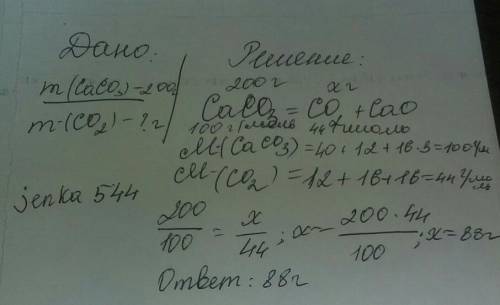 Дано:
m(CaCO3)-200
m-(CO2)-?г
jenka 544
Решение:
200г xг
CaCO3=CO2+CaO
100г/моль 44г/моль
M-(CaCO3)=40+12+16·3=100г/м
M-(CO2)=12+16+16=44г/моль
200/100=x/44; x=200·44/100; x=88г
Ответ: 88г